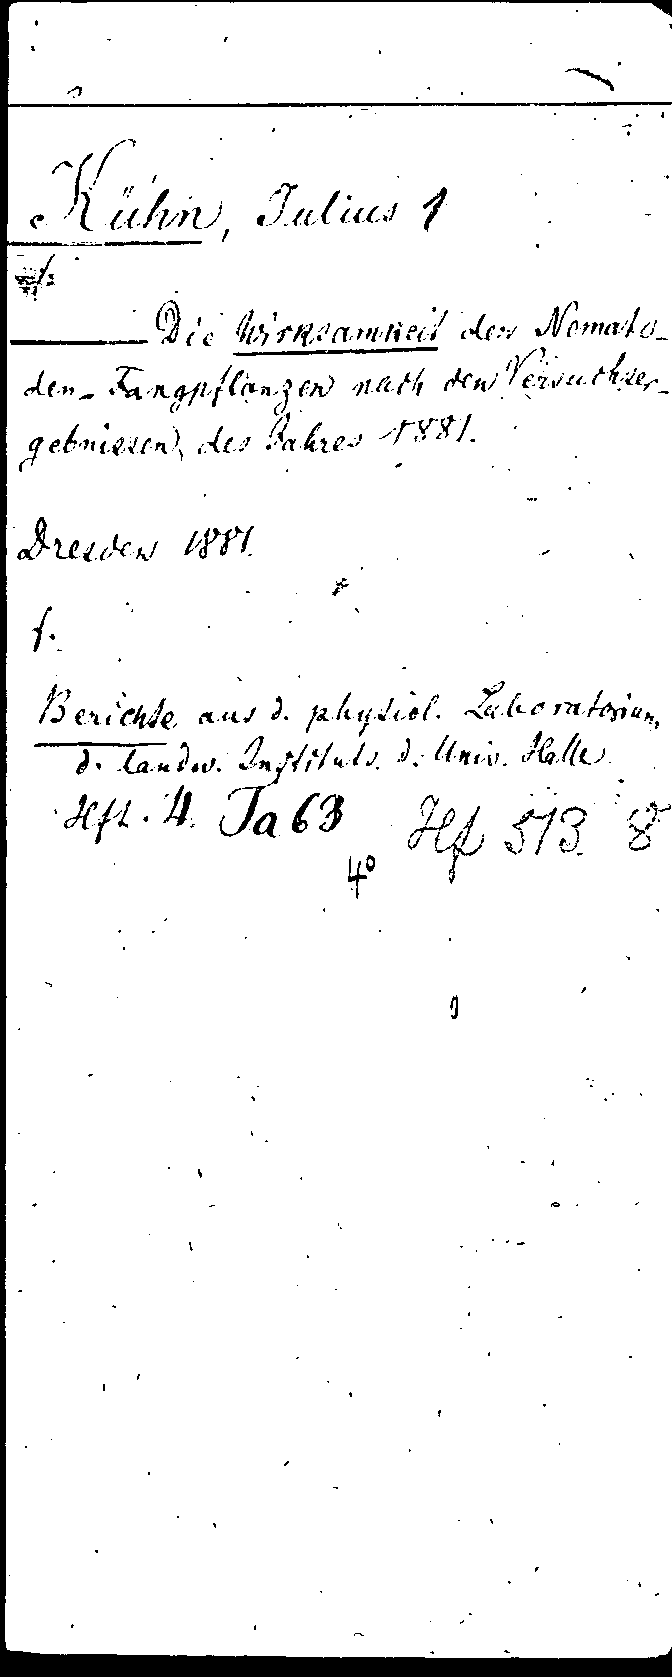 Kühn, Julius 1
Die Wirksamkeit der Nemato-
den-Fangpflanzen nach den Versuchser-
gebnissen des Jahres 1881.
Dresden 1881.
f.
Berichte aus d. physiol. Laboratorium
d. landw. Instituts d. Univ. Halle
Hft. 4. Ta 63
4°
513. 8